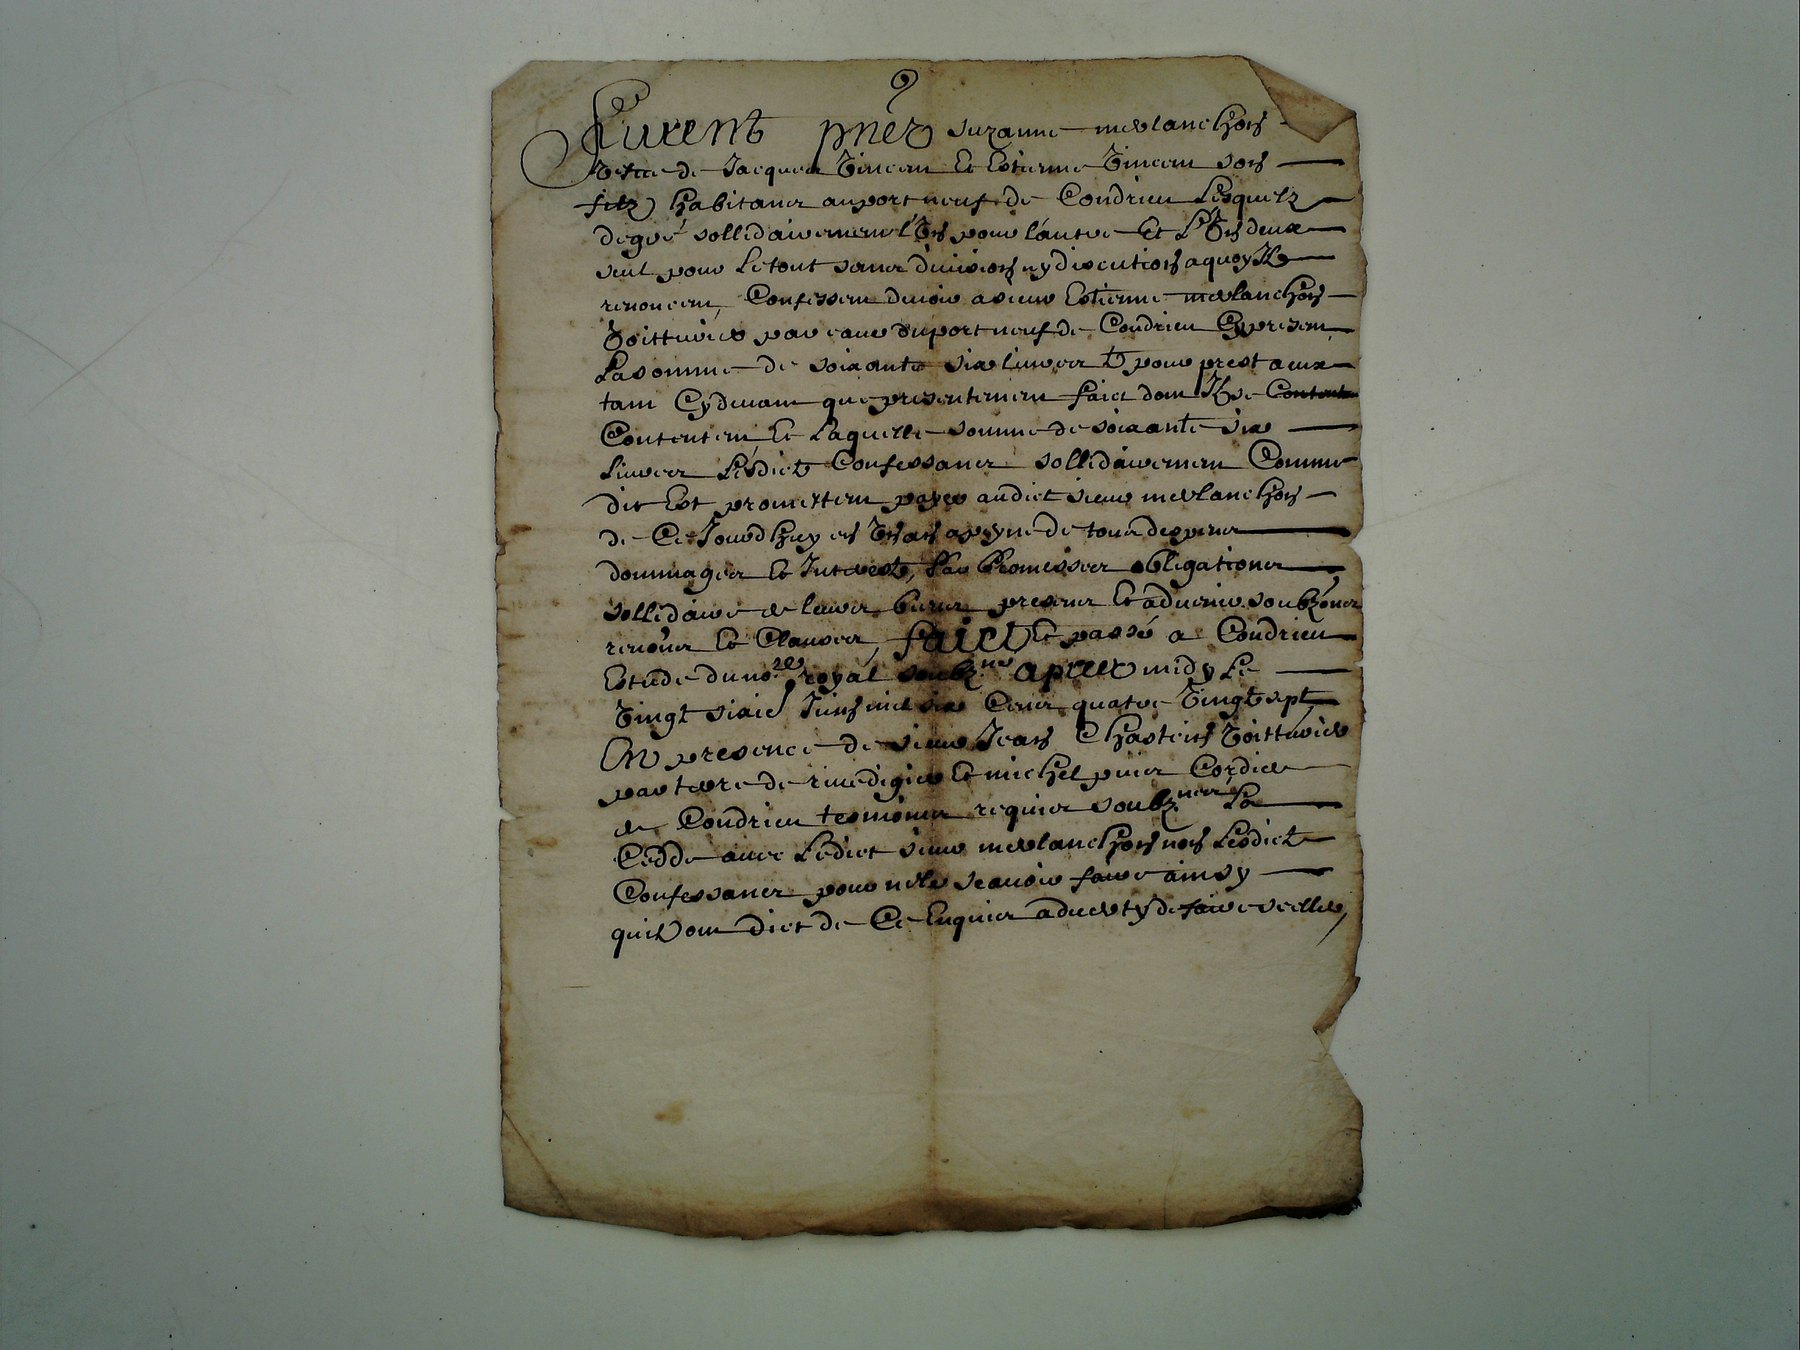 Furent pntz suzanne merlanchon
vefve de Jacques Vincent Et Estienne Vincent son
filz habitans au port neuf de Condrieu Lesquelz
de gre sollidairement l'Un pour l'autre Et L'Un deux
seul pour Le tout sans division ny discution a quoy Ilz
renoncent, Confessent devoir a sieur Estienne merlanchon
Voitturier par eau du port neuf de Condrieu Cy present
La somme de soixante six livres pour prest a eux
tant Cy devant que presentement faict dont Ilz se Contente
Contentent Et Laquelle somme de soixante six
Livres Lesdictz Confessans sollidairement Comme
dit Est promettent payer audict sieur merlanchon
de Ce Jourdhuy en Un an a peyne de tous despens
dommages Et Interestz, Par Promisses obligations
sollidaire de leurs biens presens Et advenir soubzons
renons Et Clauses, faict Et passé a Condrieu
Estude du no.re royal soubz.ne apres midy Le
Vingt sixie Juin mil six Cens quatre Vingt sept
En presence de sieur Jean Chastein Voitturier
par terre de rivedigier Et michel Cordier
de Condrieu tesmoins requis soubz.nes La
Cedde avec Ledict sieur merlanchon non Lesdictz
Confessans pour ne le scavoir faire ainsy
quilz ont dict de Ce Enquis adverty de faire seeller,